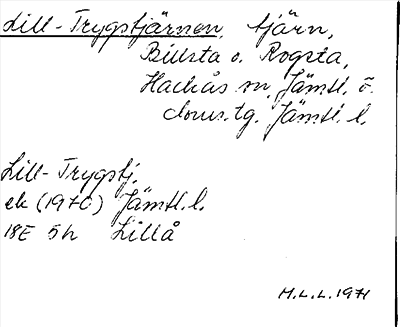 Lill-Trygstjärnen, tjärn,
Billsta o. Rogsta,
Hackås sn, Jämtl. ö.
doms.tg. Jämtl. l.
Lill-Trygstj.
ek (1970) Jämtl. l.
18E 5h Lillå
M.L.L. 1971